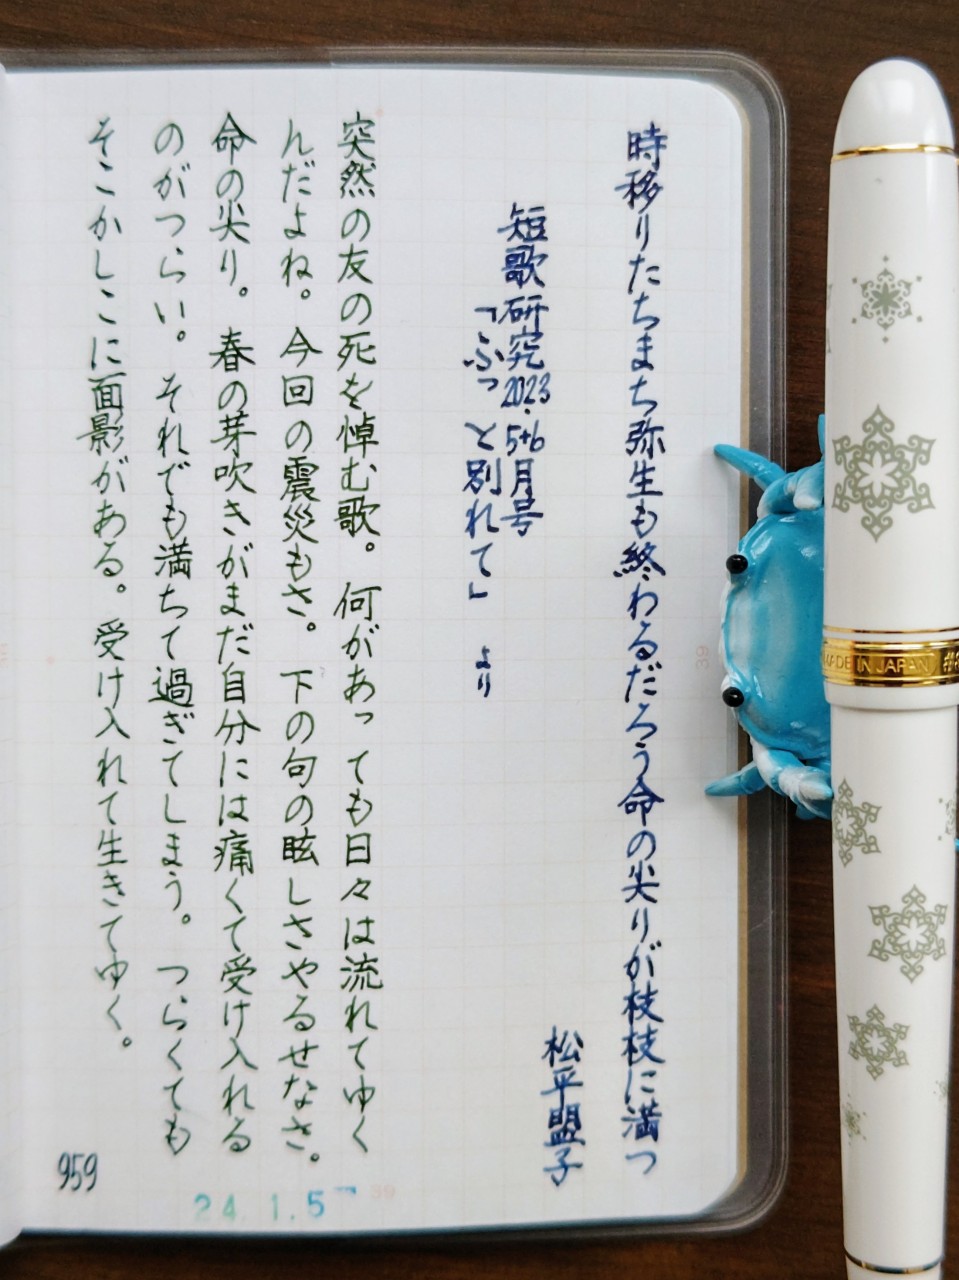 時移りたちまち弥生も終わるだろう命の尖りが枝枝に満つ
松平盟子
短歌研究2023.5+6月号
「ふっと別れて」より
突然の友の死を悼む歌。何があっても日々は流れてゆく
んだよね。今回の震災もさ。下の句の眩しさやるせなさ。
命の尖り。春の芽吹きがまだ自分には痛くて受け入れる
のがつらい。それでも満ちて過ぎてしまう。つらくても
そこかしこに面影がある。受け入れて生きてゆく。
959
24.1.5
39
39
MADE IN JAPAN